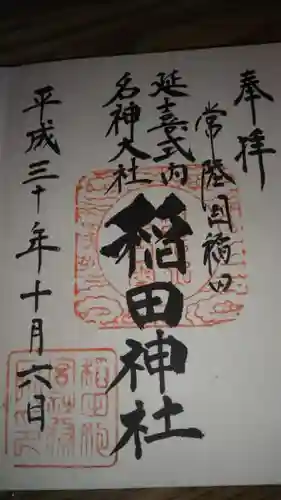 奉拝
常陸国稲田
延喜式内
名神大社
稲田神社
平成三十年十月六日